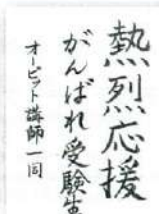 熱烈応援
がんばれ受験生
オービット講師一同